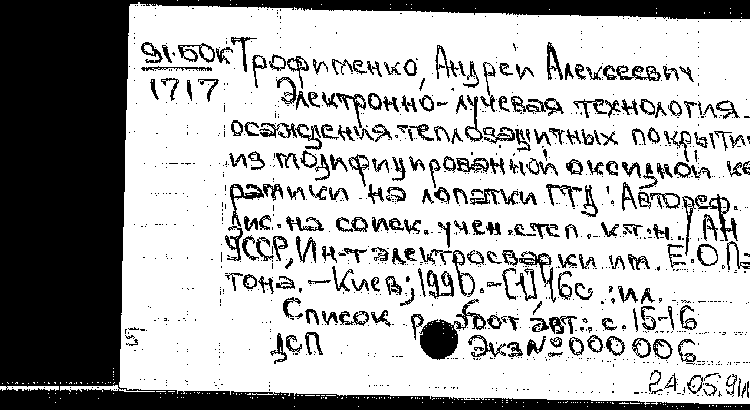 91-БОК Трофименко, Андрей Алексеевич
1717
Электронно-лучевая технология
осаждения теплозащитных покрытий
из модифицированной оксидной ке
рамики на лопатки ГТД : Автореф.
дис. на соиск. учен. степ. к.т.н. / АН
УССР, Ин-т электросварки им. Е.О.Па
тона. – Киев; 1990. – [1] 16с. : ил.
Список работ авт.: с. 15-16
5
ДСП Экз № 000006
24.05.91